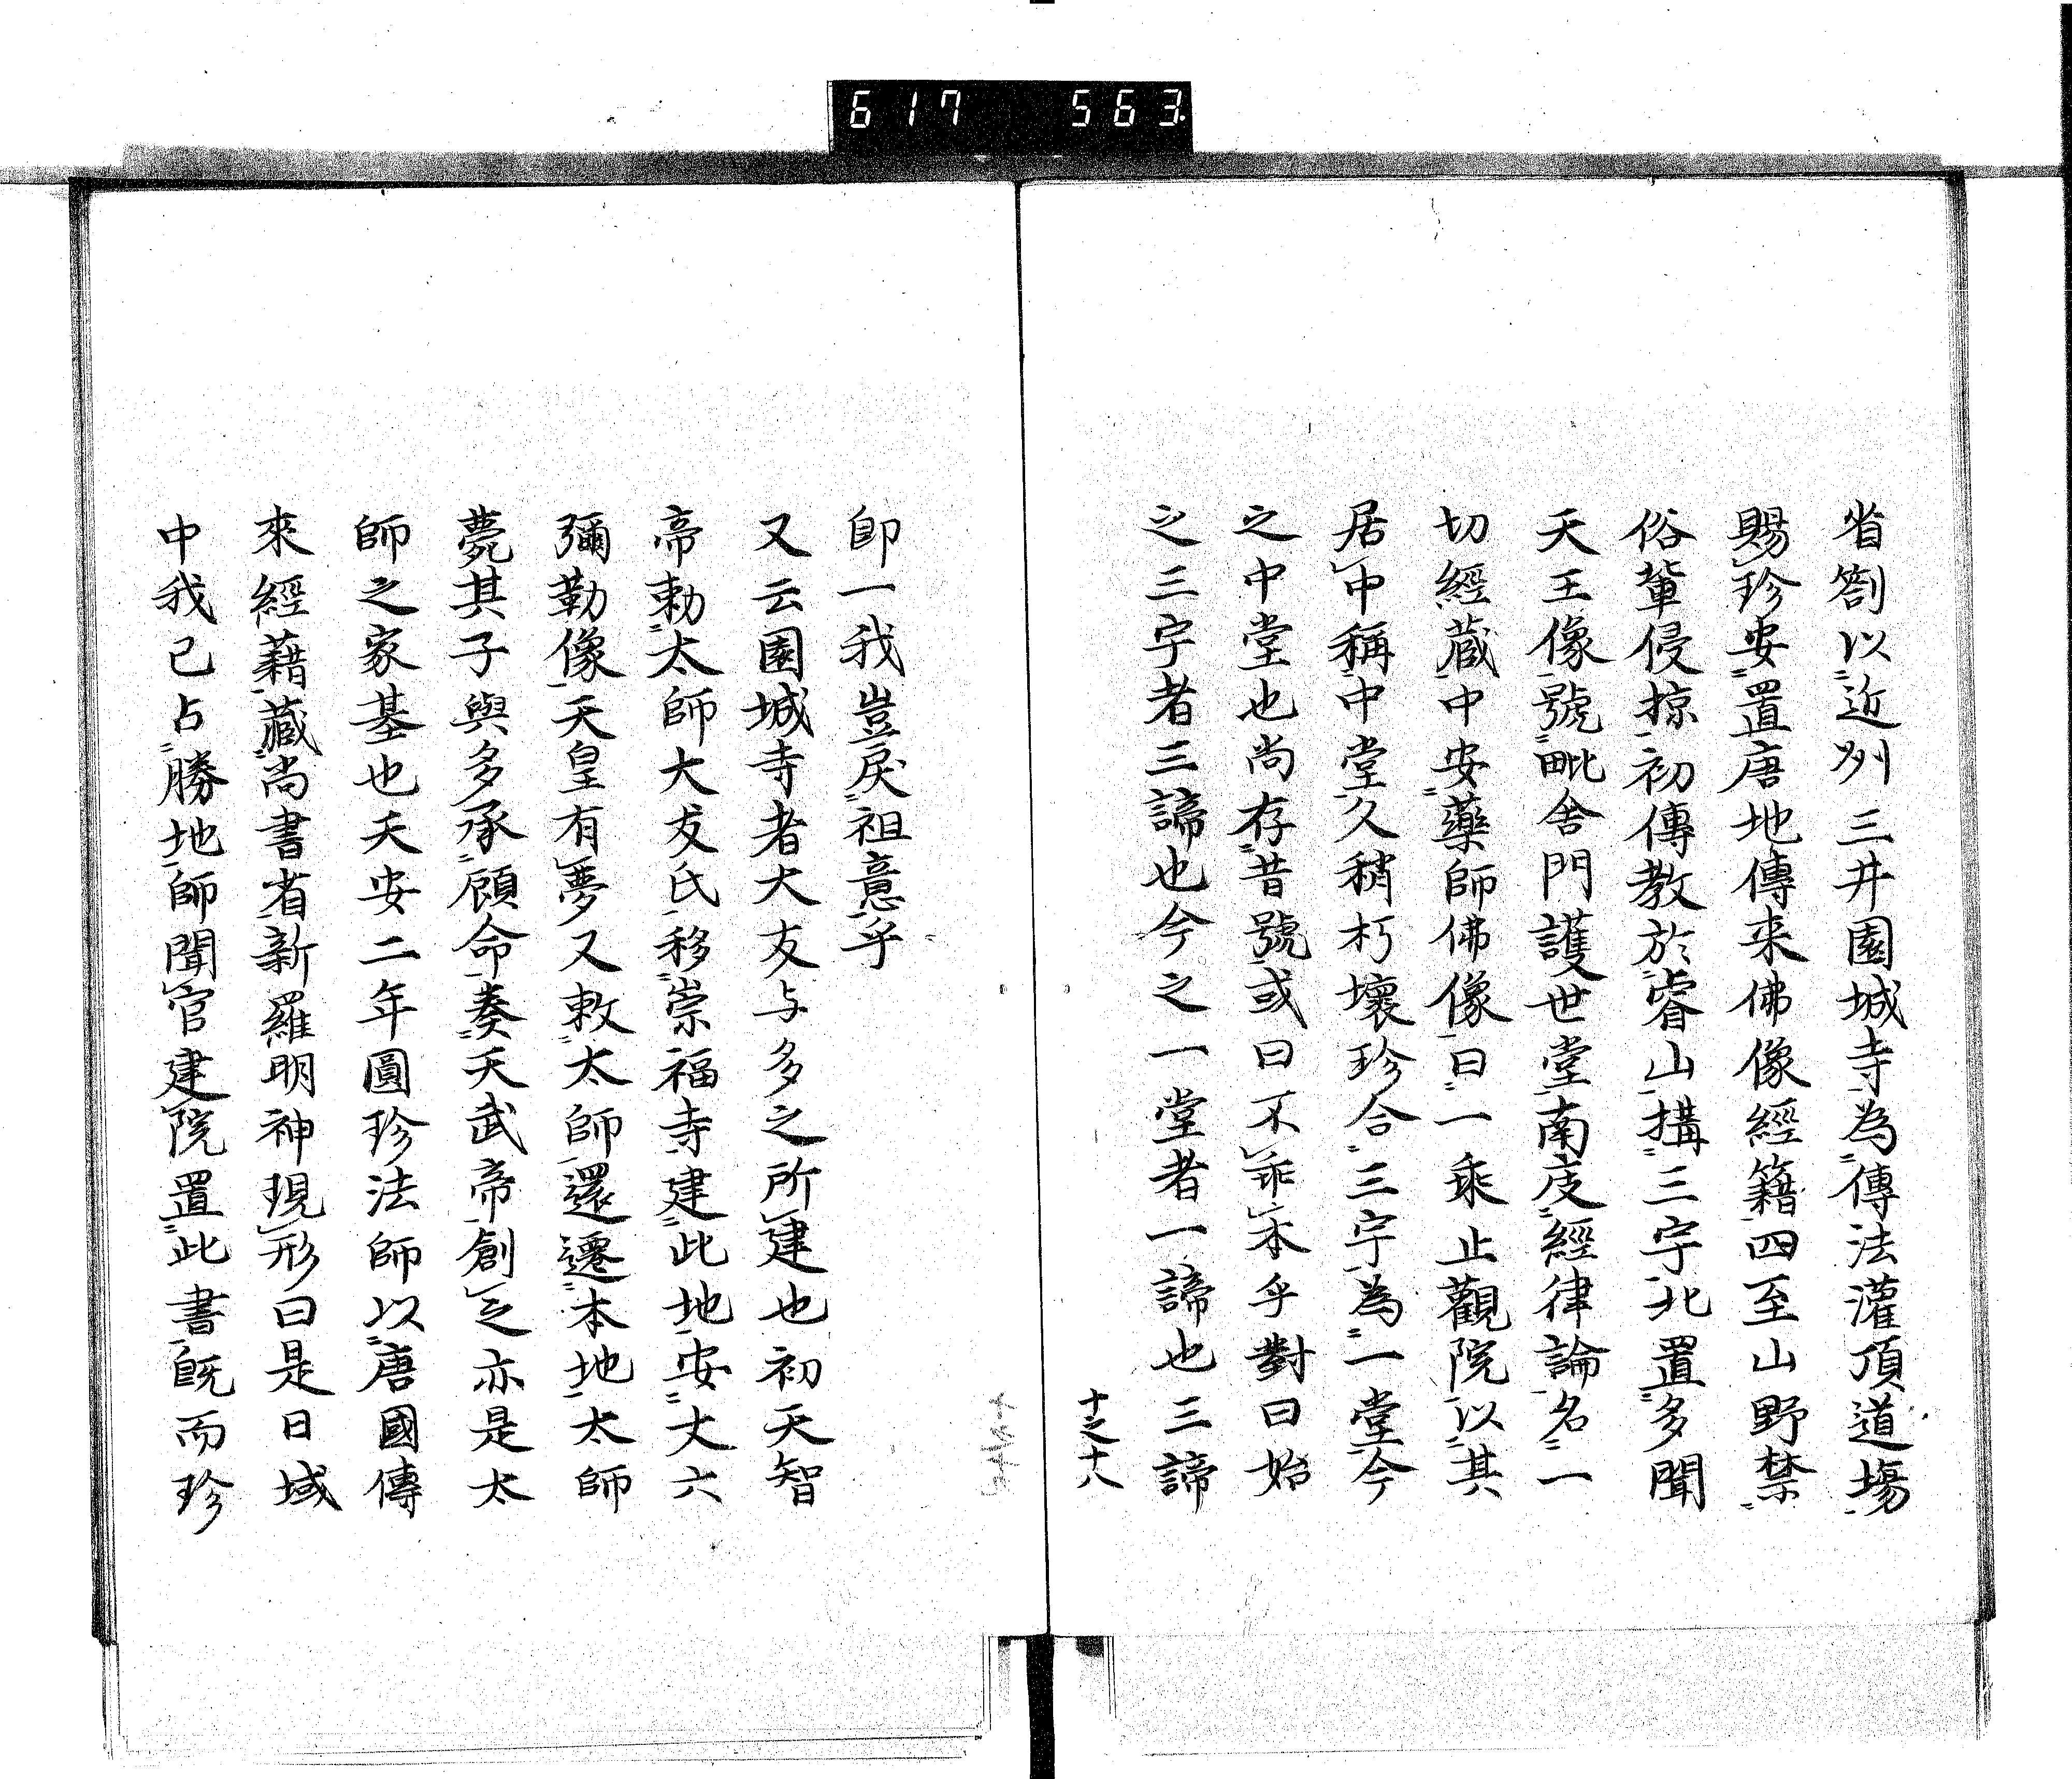 617 563
省劄以近州三井園城寺為傳法灌頂道場
賜珍安置唐地傳来佛像經籍四至山野禁
俗輩侵掠初傳教於睿山搆三宇北置多聞
天王像號毗舍門護世堂南庋經律論名一
切經蔵中安藥師佛像曰一乘止觀院以其
居中稱中堂久稍朽壞珍合三宇為一堂今
之中堂也尚存昔號或曰不乖本乎對曰始
之三宇者三諦也今之一堂者一諦也三諦
十之十八
即一我豈戾祖意乎
又云園城寺者大友与多之所建也初天智
帝勅太師大友氏移崇福寺建此地安丈六
彌勒像天皇有夢又敕太師還遷本地太師
薨其子與多承顧命奏天武帝創之亦是太
師之家基也天安二年圓珍法師以唐國傳
來經藉藏尚書省新羅明神現形曰是日域
中我已占勝地師聞官建院置此書旣而珍